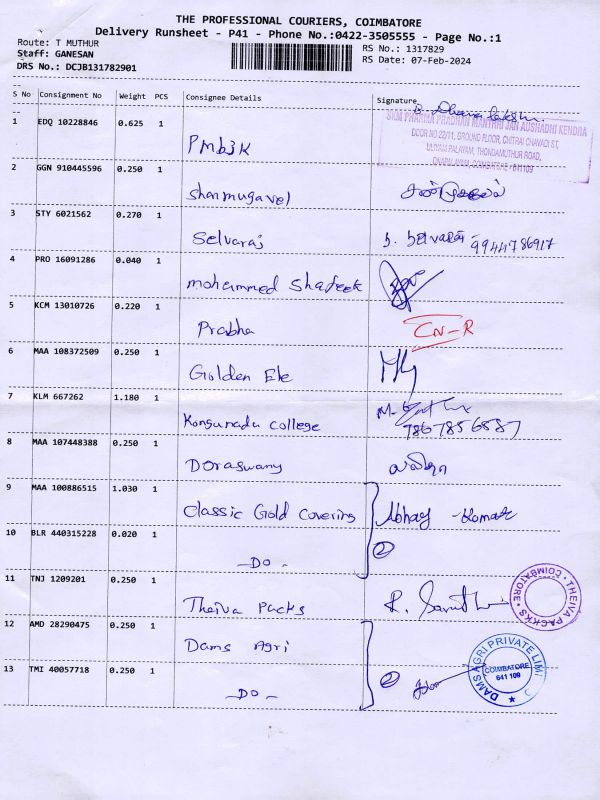 THE PROFESSIONAL COURIERS, COIMBATORE
Delivery Runsheet - P41 - Phone No.:0422-3505555 - Page No.:1
Route: T MUTHUR
RS No.: 1317829
Staff: GANESAN
RS Date: 07-Feb-2024
DRS No.: DCJB131782901
S No Consignment No Weight PCS Consignee Details Signature
B. Dhanalakshmi
SRM PHARMA PRADHAN MANTHRI JAN AUSHADHI KENDRA
DOOR NO 22/11, GROUND FLOOR, CHITRAI CHAVADI ST,
ULIYAM PALAYAM, THONDAMUTHUR ROAD,
COIMBATORE - 641109
1 EDQ 10228846 0.625 1 PMBJK
2 GGN 910445596 0.250 1 Shanmugavel
3 STY 6021562 0.270 1 Selvaraj S. Selvaraj - 9944786917
4 PRO 16091286 0.040 1 mohammed Shafeek
5 KCM 13010726 0.220 1 Prabha CN-R
6 MAA 108372509 0.250 1 Golden Ele
7 KLM 667262 1.180 1 Kongunadu college M.
7867856587
8 MAA 107448388 0.250 1 Doraswamy
9 MAA 100886515 1.030 1 Classic Gold Covering Abhay - Komar
10 BLR 440315228 0.020 1 - DO - 2
11 TNJ 1209201 0.250 1 Theiva Packs R.
THEIVA PACKS • COIMBATORE •
12 AMD 28290475 0.250 1 Dams Agri
13 TMI 40057718 0.250 1 - DO - 2
DAMS AGRI PRIVATE LIMI
COIMBATORE
641 109